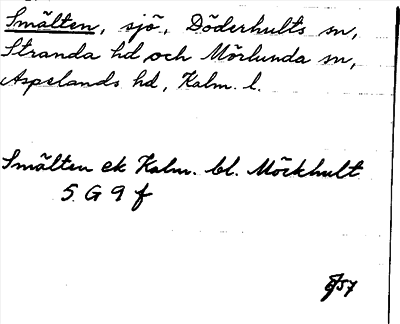 Smälten, sjö, Döderhults sn,
Stranda hd och Mörlunda sn,
Aspelands hd, Kalm. l.
Smälten ek Kalm. bl. Möckhult
5 G 9 f